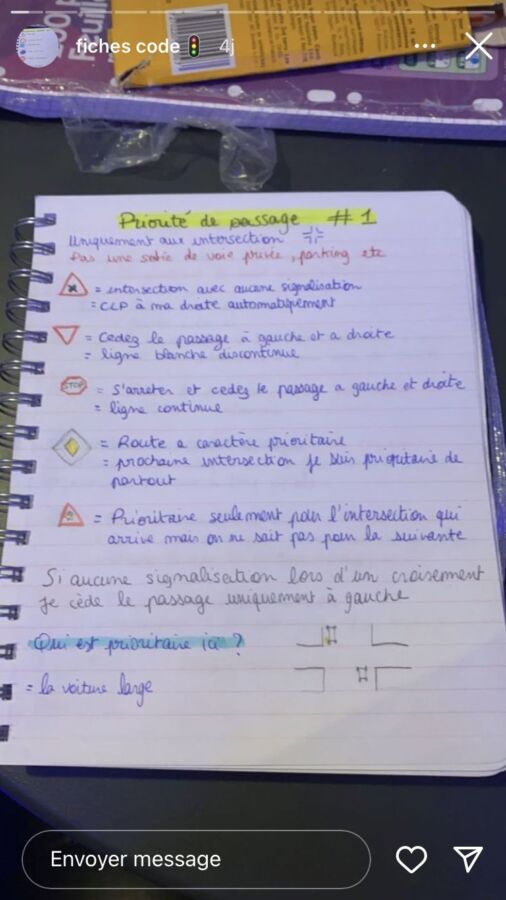 fiches code 🚦 4j
Priorité de passage #1
Uniquement aux intersection
Pas une sortie de voie privée, parking etc
= intersection avec aucune signalisation
= CLP à ma droite automatiquement
= Cedez le passage à gauche et a droite
= ligne blanche discontinue
STOP = S'arreter et cedez le passage a gauche et droite
= ligne continue
= Route a caractère prioritaire
= prochaine intersection je suis prioritaire de
partout
= Prioritaire seulement pour l'intersection qui
arrive mais on ne sait pas pour la suivante
Si aucune signalisation lors d'un croisement
je cède le passage uniquement à gauche
Qui est prioritaire ici ?
= la voiture large
Envoyer message